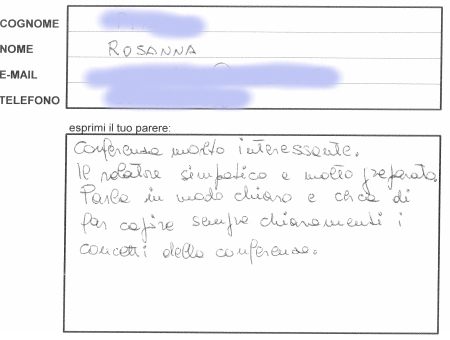 COGNOME
NOME ROSANNA
E-MAIL
TELEFONO
esprimi il tuo parere:
Conferenza molto interessante.
Il relatore simpatico e molto preparato.
Parla in modo chiaro e cerca di
far capire sempre chiaramente i
concetti della conferenza.